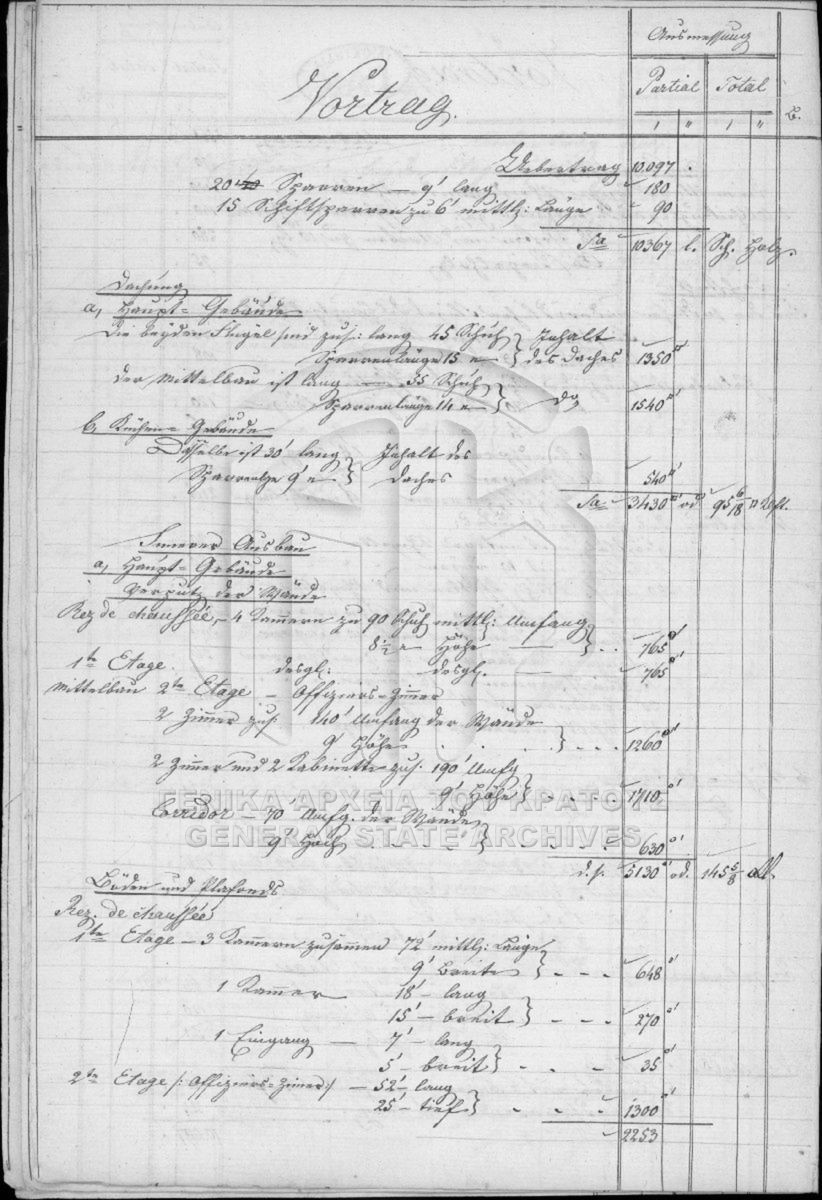 Ausmessung
Vortrag.
Partial Total
' " ' "
Uebertrag 10.097 .
20 Sparren — 9' lang 180
15 Schiftsparren zu 6' mittl: Länge 90
Sa 10367 l. Sch. Holz.
Dachung
a, Haupt= Gebäude
Die beyden Flügel sind zus: lang 45 Schuh } Inhalt
Sparrenlänge 15 " } des Daches 1350 □'
der Mittelbau ist lang — 55 Schuh }
Sparrenlänge 14 " } do 1540 □'
b, Küchen= Gebäude
Dasselbe ist 30' lang } Inhalt des
9' " } Daches 540 □'
Sa 3430 □' od 95 6/18
Innerer Ausbau
a, Haupt= Gebäude
Verputz der Wände
Rez de chaussée, – 4 Kammern zu 90 Schuh mittl: Umfang }
8½ " Höhe — } . . 765 □'
1te Etage. desgl: — desgl. — 765 □'
Mittelbau 2te Etage – Offiziers=Zimmer
2 Zimmer zus: 140' Umfang der Wände
9' Höhe . . . . } - - . 1260 □'
2 Zimmer und 2 Kabinette zus. 190' Umfg
9' Höhe } . . . . 1710 □'
ΓΕΝΙΚΑ ΑΡΧΕΙΑ ΤΟΥ ΚΡΑΤΟΥΣ
Corridor – 70' Umfg. der Wände
GENERAL STATE ARCHIVES
9' Hoch — } 630 □'
d. s. 5130 □' od. 145 5/8
Böden und Plafonds
Rez. de chaussée
1te Etage – 3 Kammern zusammen 72' mittl: Länge
9' Breite } - - . 648 □'
1 Kammer 18' – lang
15' – breit } - - - 270 □'
1 Eingang — 7' – lang
5' – breit } - - . 35 □'
2te Etage /: Offiziers=Zimer :/ — 52' – lang
25' – tief } . . . 1300 □'
2253